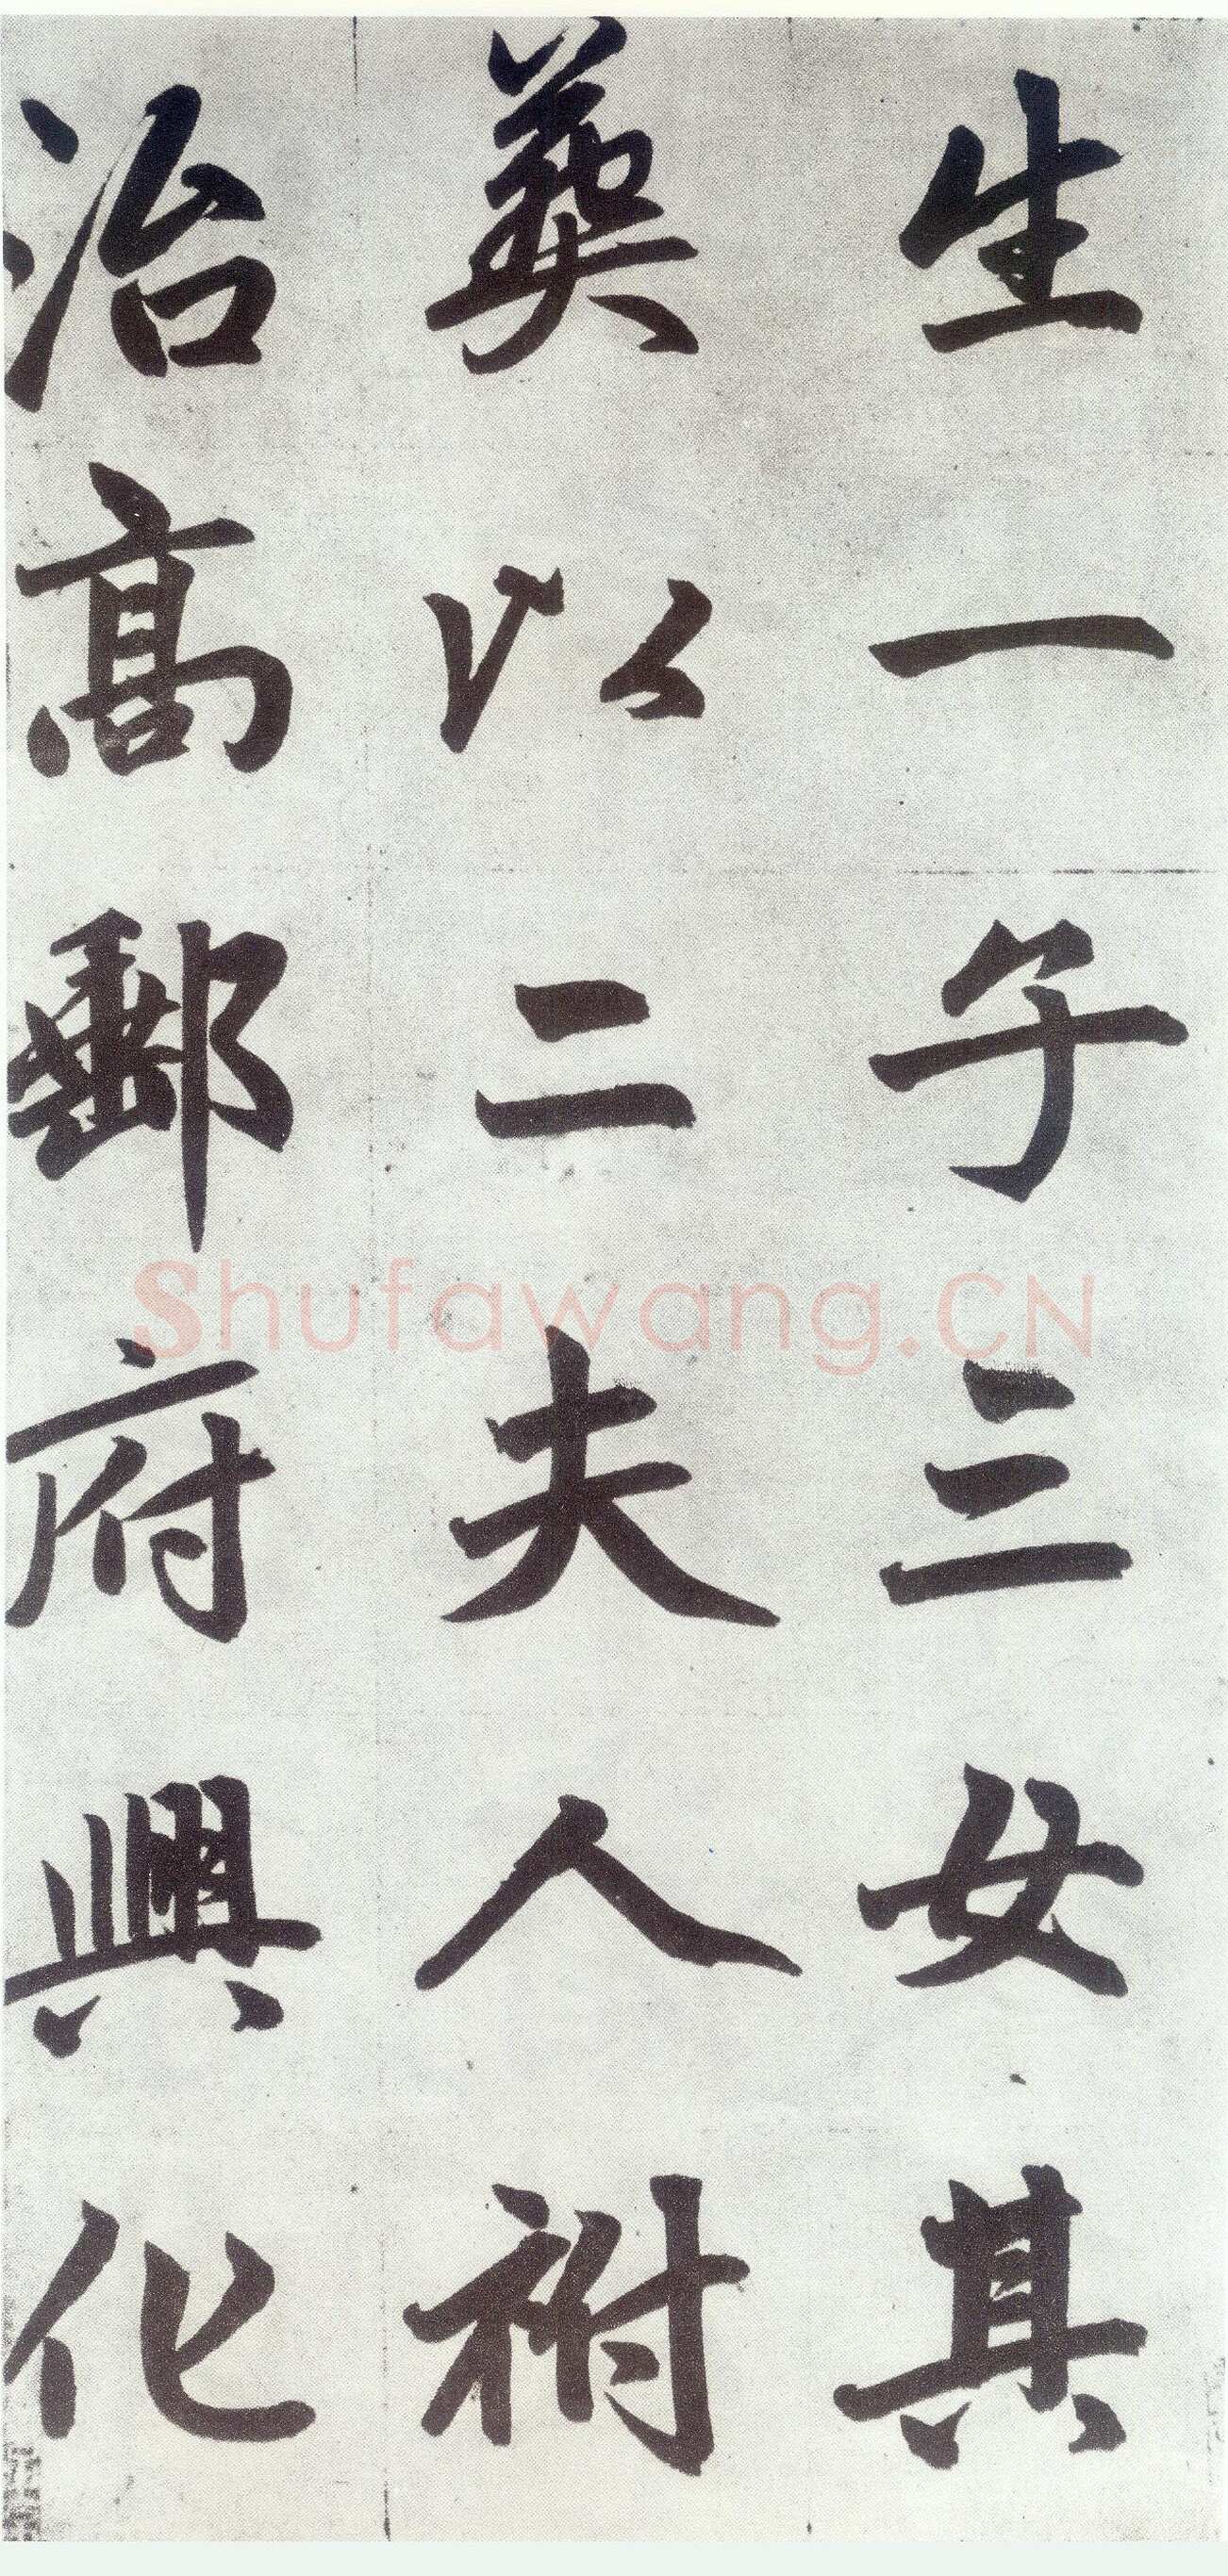 生一子三女其
葬以二夫人祔
治高郵府興化
Shufawang.CN